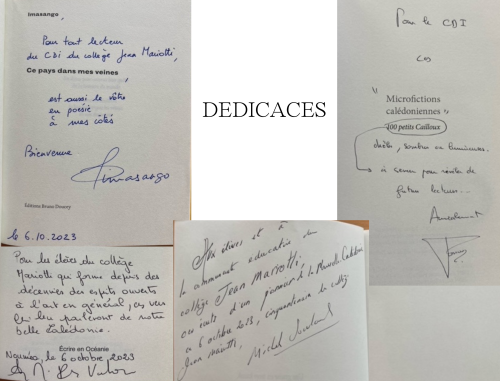 imasango,
Pour tout lecteur
du CDI du collège Jean Mariotti,
Ce pays dans mes veines
est aussi le vôtre
en poésie
à mes côtés
Bienvenue
Imasango
Éditions Bruno Doucey
le 6.10.2023
DEDICACES
Pour le CDI
Microfictions
calédoniennes
100 petits Cailloux
drôles, sombres ou lumineuses.
à semer pour
futurs lecteurs...
Amicalement
Pour les élèves du collège
Mariotti qui forme depuis des
décennies des esprits ouverts
à l'art en général, ces vers
qui leur parleront de notre
belle Calédonie.
Écrire en Océanie
Nouméa, le 6 octobre 2023
Aux élèves et à
la communauté éducative du
collège Jean Mariotti,
un pionnier de la Nouvelle Calédonie
le 6 octobre 2023, cinquantenaire du collège
Jean Mariotti,
Michel